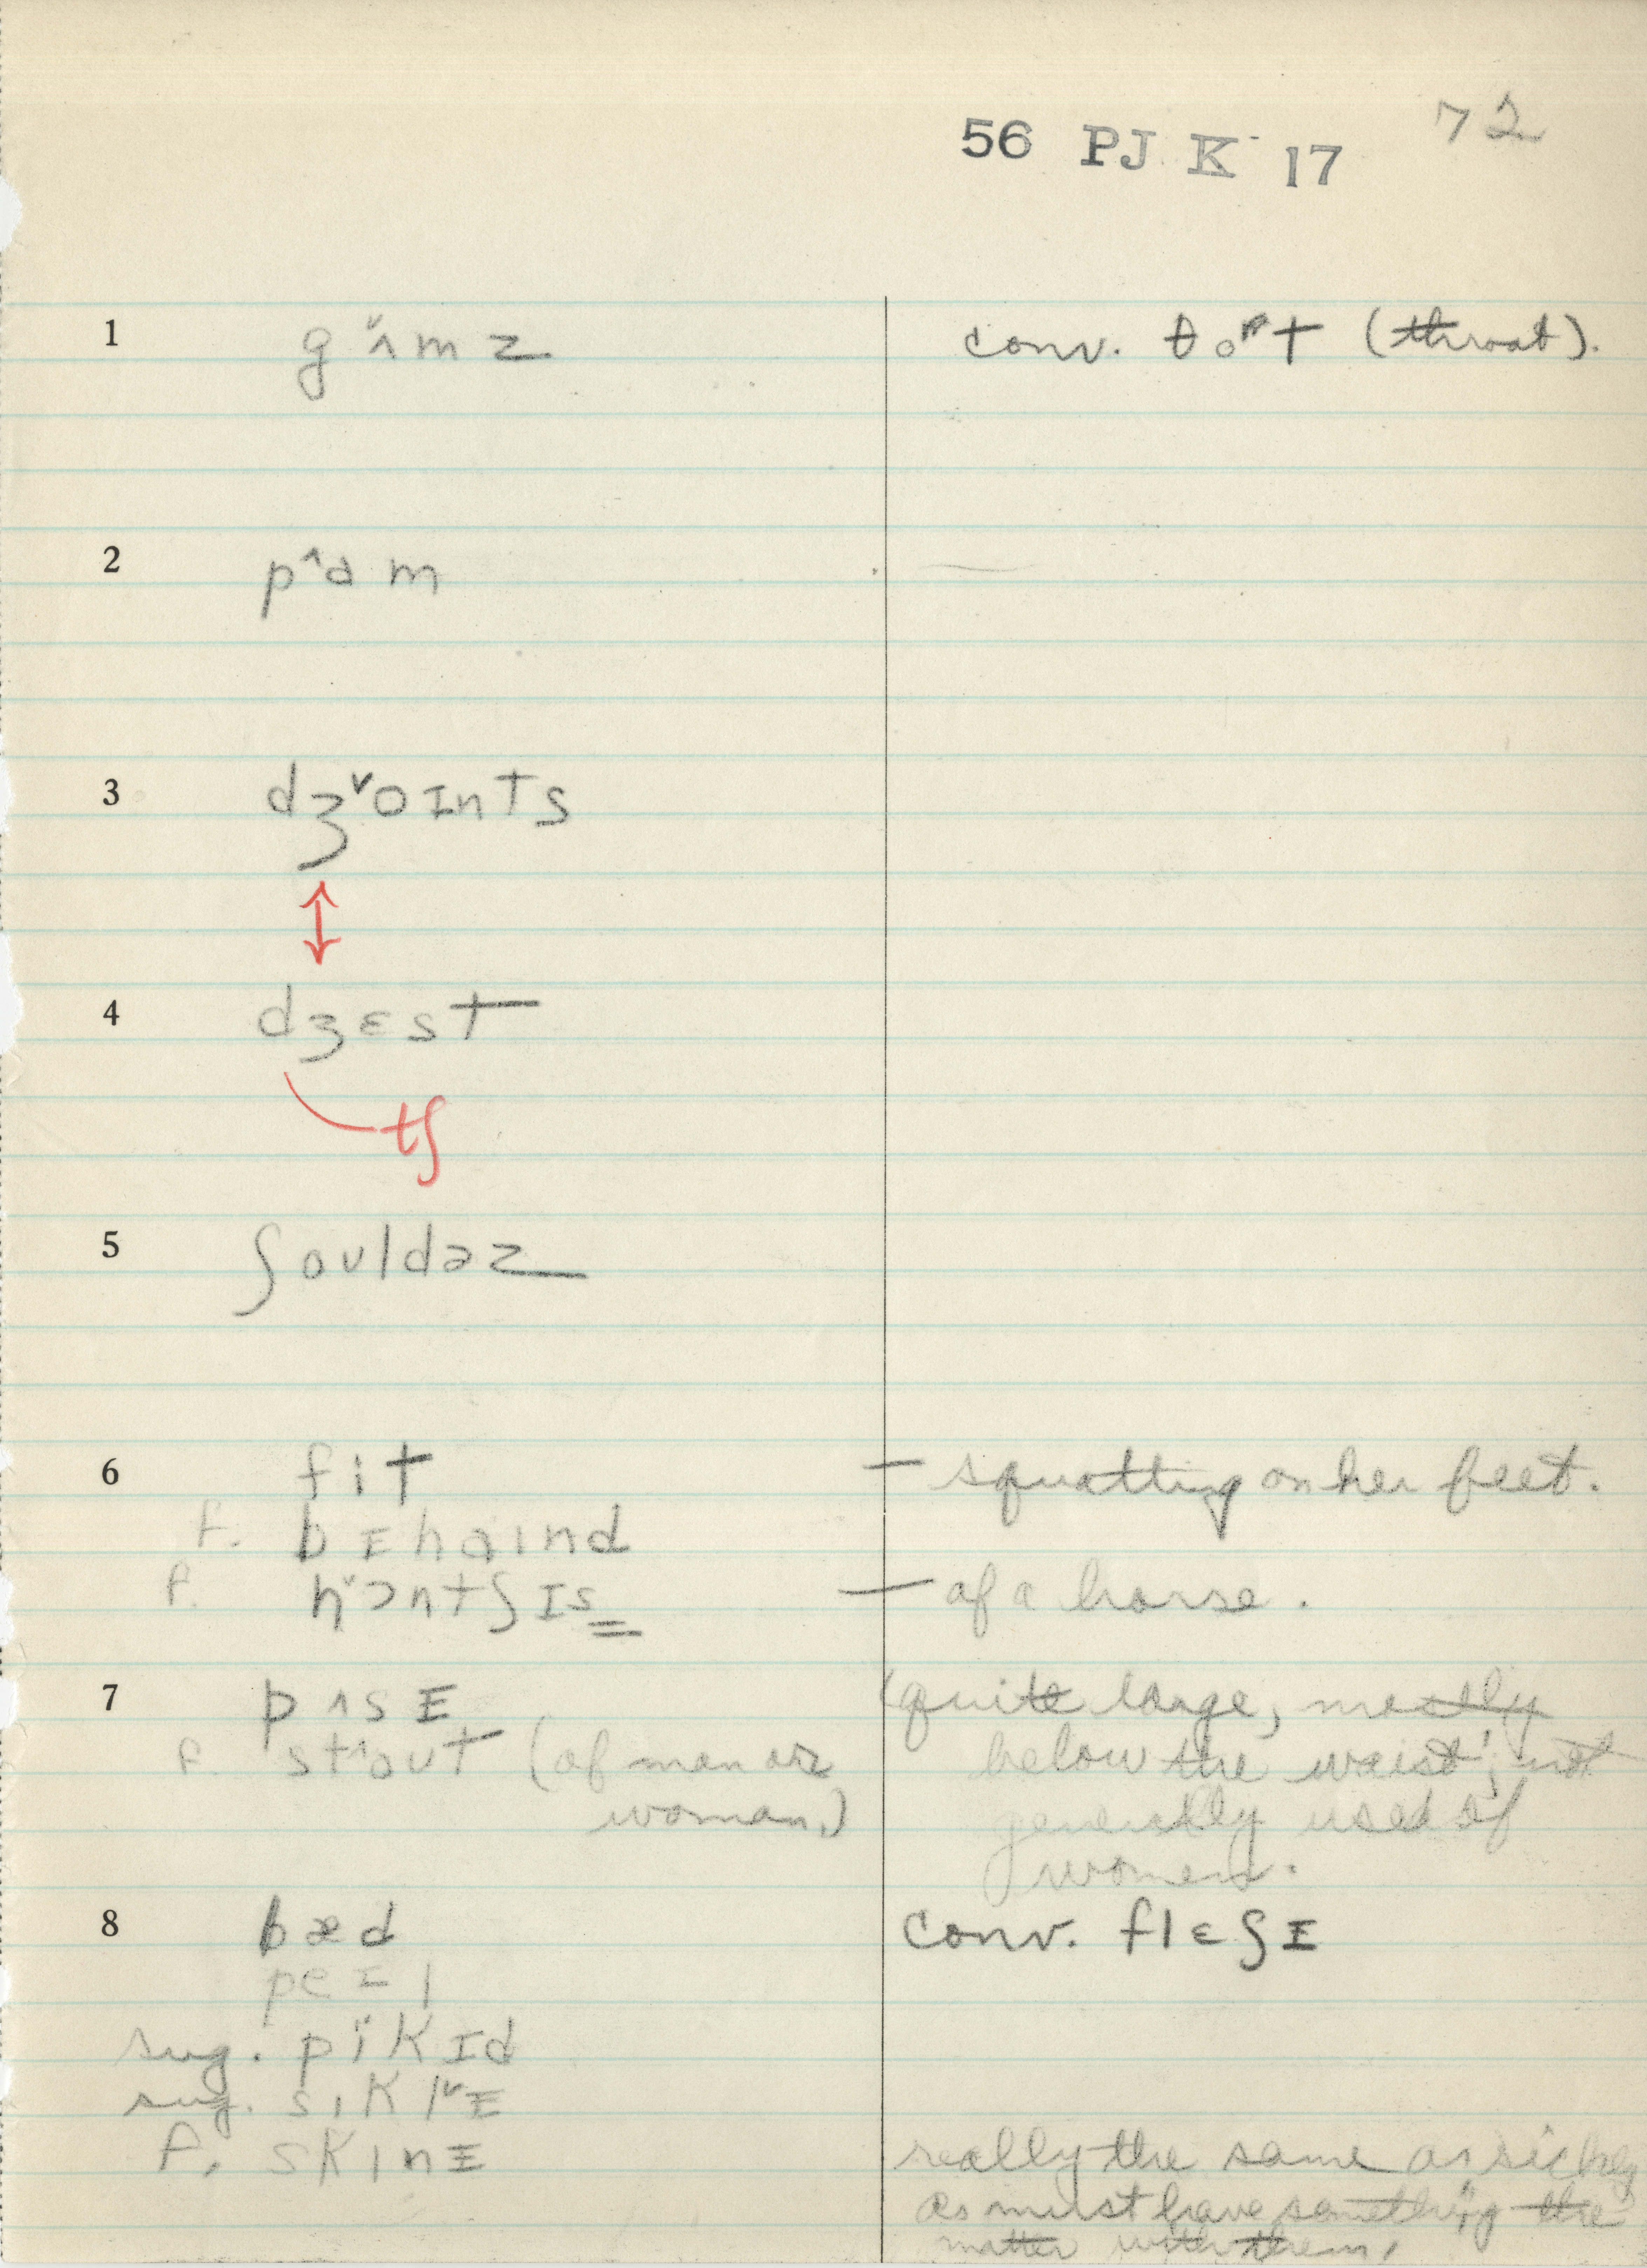 56 PJ K 17 72
1 gʌ̌mz conv. θoʳt (throat).
2 p^ɑm
3 dʒˇoɪnts
4 dʒɛst
tʃ
5 ʃouldəz
6 fit – squatting on her feet.
f. bɪhaɪnd
f. hˇɔntʃɪs – of a horse.
7 pʌsɪ (quite large, mostly
f. st^out (of man or below the waist; not
woman.) generally used of
women.
8 bæd conv. flɛʃɪ
peɪl
sug. pikɪd
sug. sɪklˇɪ
f. skɪnɪ really the same as sickly
as must have something the
matter with them.